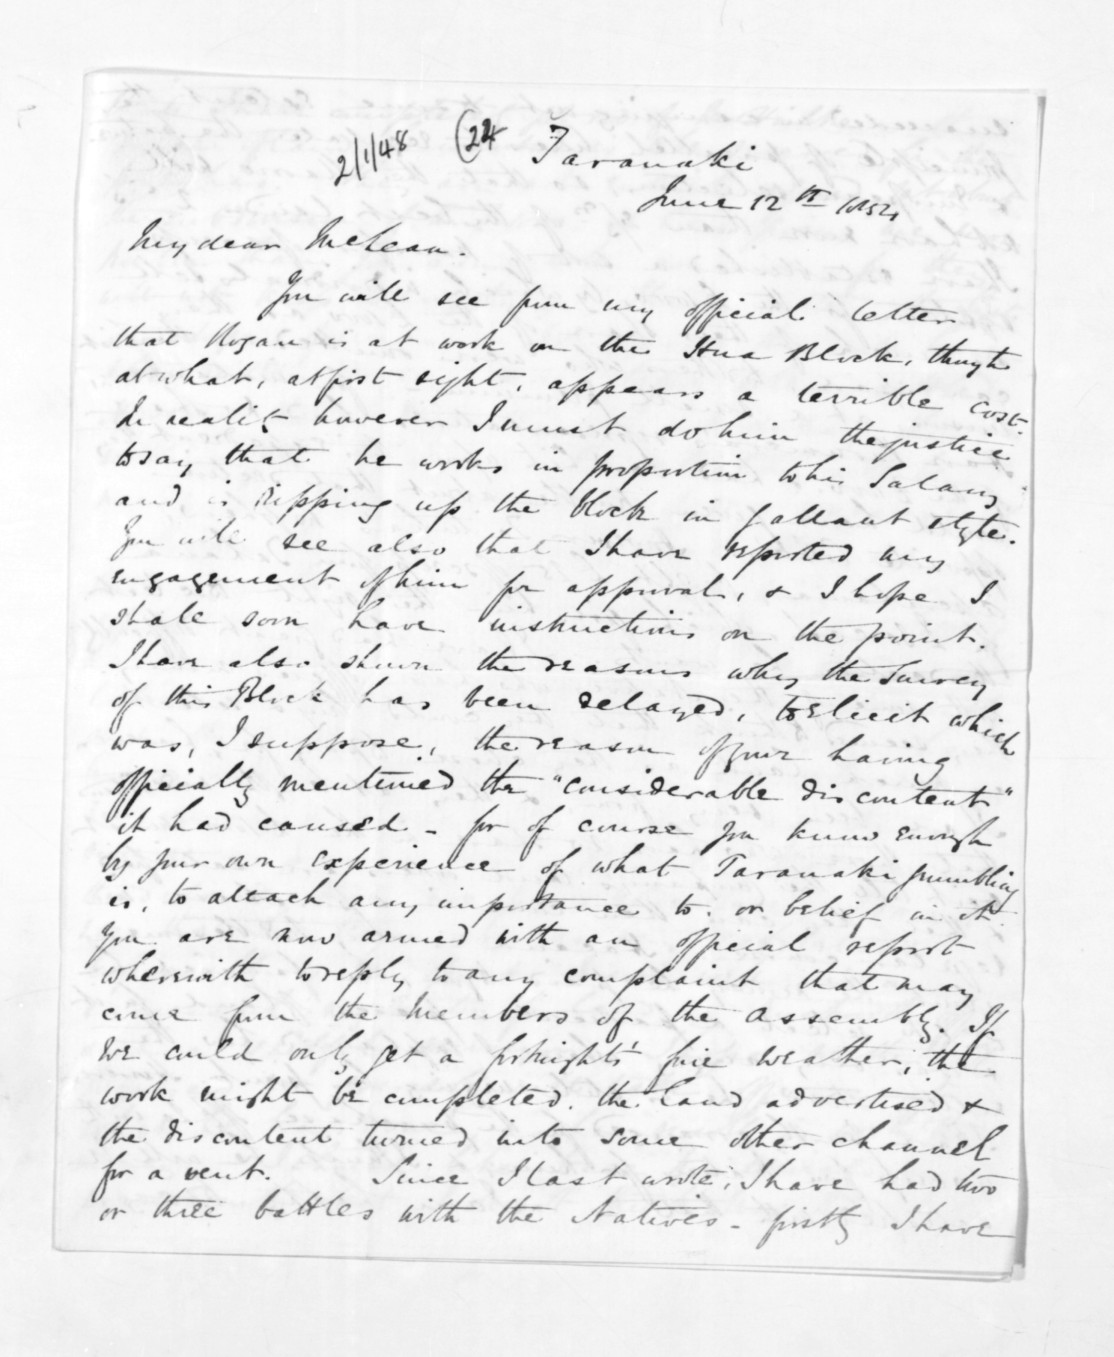 2/1/48 (24
Taranaki
June 12th 1854
My dear McLean.
You will see from my official letter
that Rogan is at work on the Hua Block, though
at what, at first sight, appears a terrible cost.
In reality however I must do him the justice
to say that he works in proportion to his Salary
and is ripping up the block in gallant style.
You will see also that I have reported my
engagement of him for approval, & I hope I
shall soon have instructions on the point.
I have also shown the reasons why the Survey
of this Block has been delayed, to elicit which
was, I suppose, the reason of your having
officially mentioned the "considerable discontent"
it had caused - for of course you know enough
by your own experience of what Taranaki grumbling
is, to attach any importance to, or belief in it.
You are now armed with an official report
wherewith to reply to any complaint that may
come from the Members of the Assembly. If
we could only get a fortnights' fine weather, the
work might be completed, the land advertised &
the discontent turned into some other channel
for a vent. Since I last wrote, I have had two
or three battles with the Natives - firstly I have